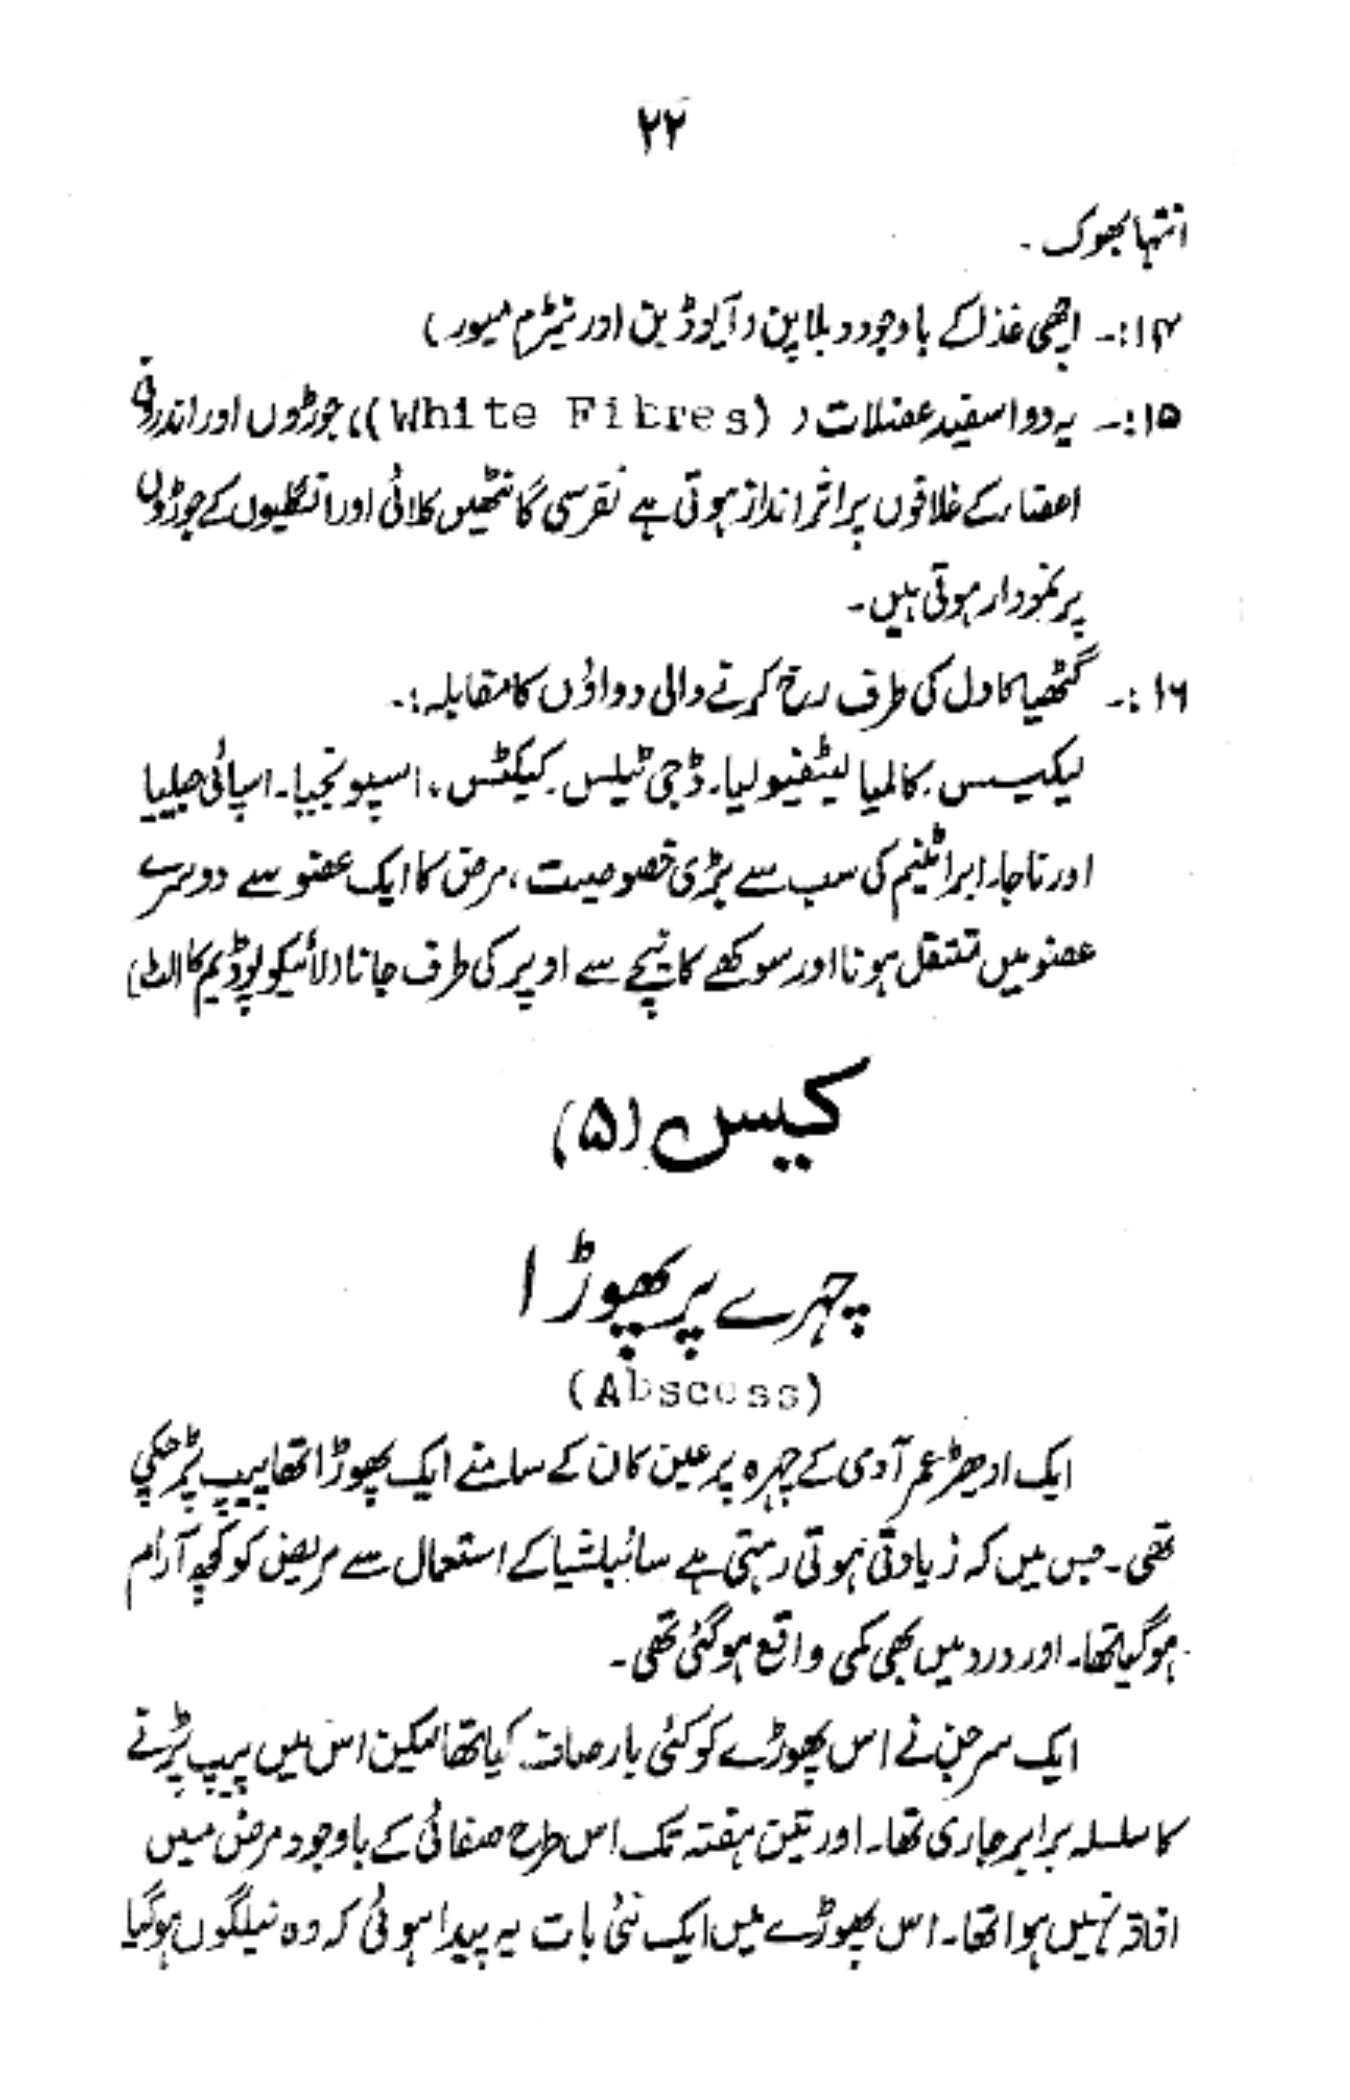 ۲۲
انتہا بھوک ۔
۱۴:۔ اچھی غذا کے باوجود دبلا پن (آیوڈین اور نیٹرم میور)
۱۵:۔ یہ دوا سفید عضلات ((White Fibres))، جوڑوں اور اندرونی
اعضاء کے غلافوں پر اثر انداز ہوتی ہے نقرسی گانٹھیں کلائی اور انگلیوں کے جوڑوں
پر نمودار ہوتی ہیں۔
۱۶:۔ گٹھیا کا دل کی طرف رخ کرنے والی دواؤں کا مقابلہ:۔
لیکیسس۔ کالمیا لیٹفیولیا۔ ڈجی ٹیلس۔ کیکٹس، اسپونجیا۔ اسپائی جیلیا
اور ناجا۔ ابراٹینم کی سب سے بڑی خصوصیت، مرض کا ایک عضو سے دوسرے
عضو میں منتقل ہونا اور سوکھے کا نیچے سے اوپر کی طرف جانا (لائیکوپوڈیم کا الٹا)
کیس (۵)
چہرے پر پھوڑا
(Abscess)
ایک ادھیڑ عمر آدمی کے چہرہ پر عین کان کے سامنے ایک پھوڑا تھا پیپ پڑ چکی
تھی۔ جس میں کہ زیادتی ہوتی رہتی ہے سائیلیشیا کے استعمال سے مریض کو کچھ آرام
ہو گیا تھا۔ اور درد میں بھی کمی واقع ہو گئی تھی۔
ایک سرجن نے اس پھوڑے کو کئی بار صاف کیا تھا لیکن اس میں پیپ پڑنے
کا سلسلہ برابر جاری تھا۔ اور تین ہفتہ تک اس طرح صفائی کے باوجود مرض میں
افاقہ نہیں ہوا تھا۔ اس پھوڑے میں ایک نئی بات یہ پیدا ہوئی کہ وہ نیلگوں ہو گیا